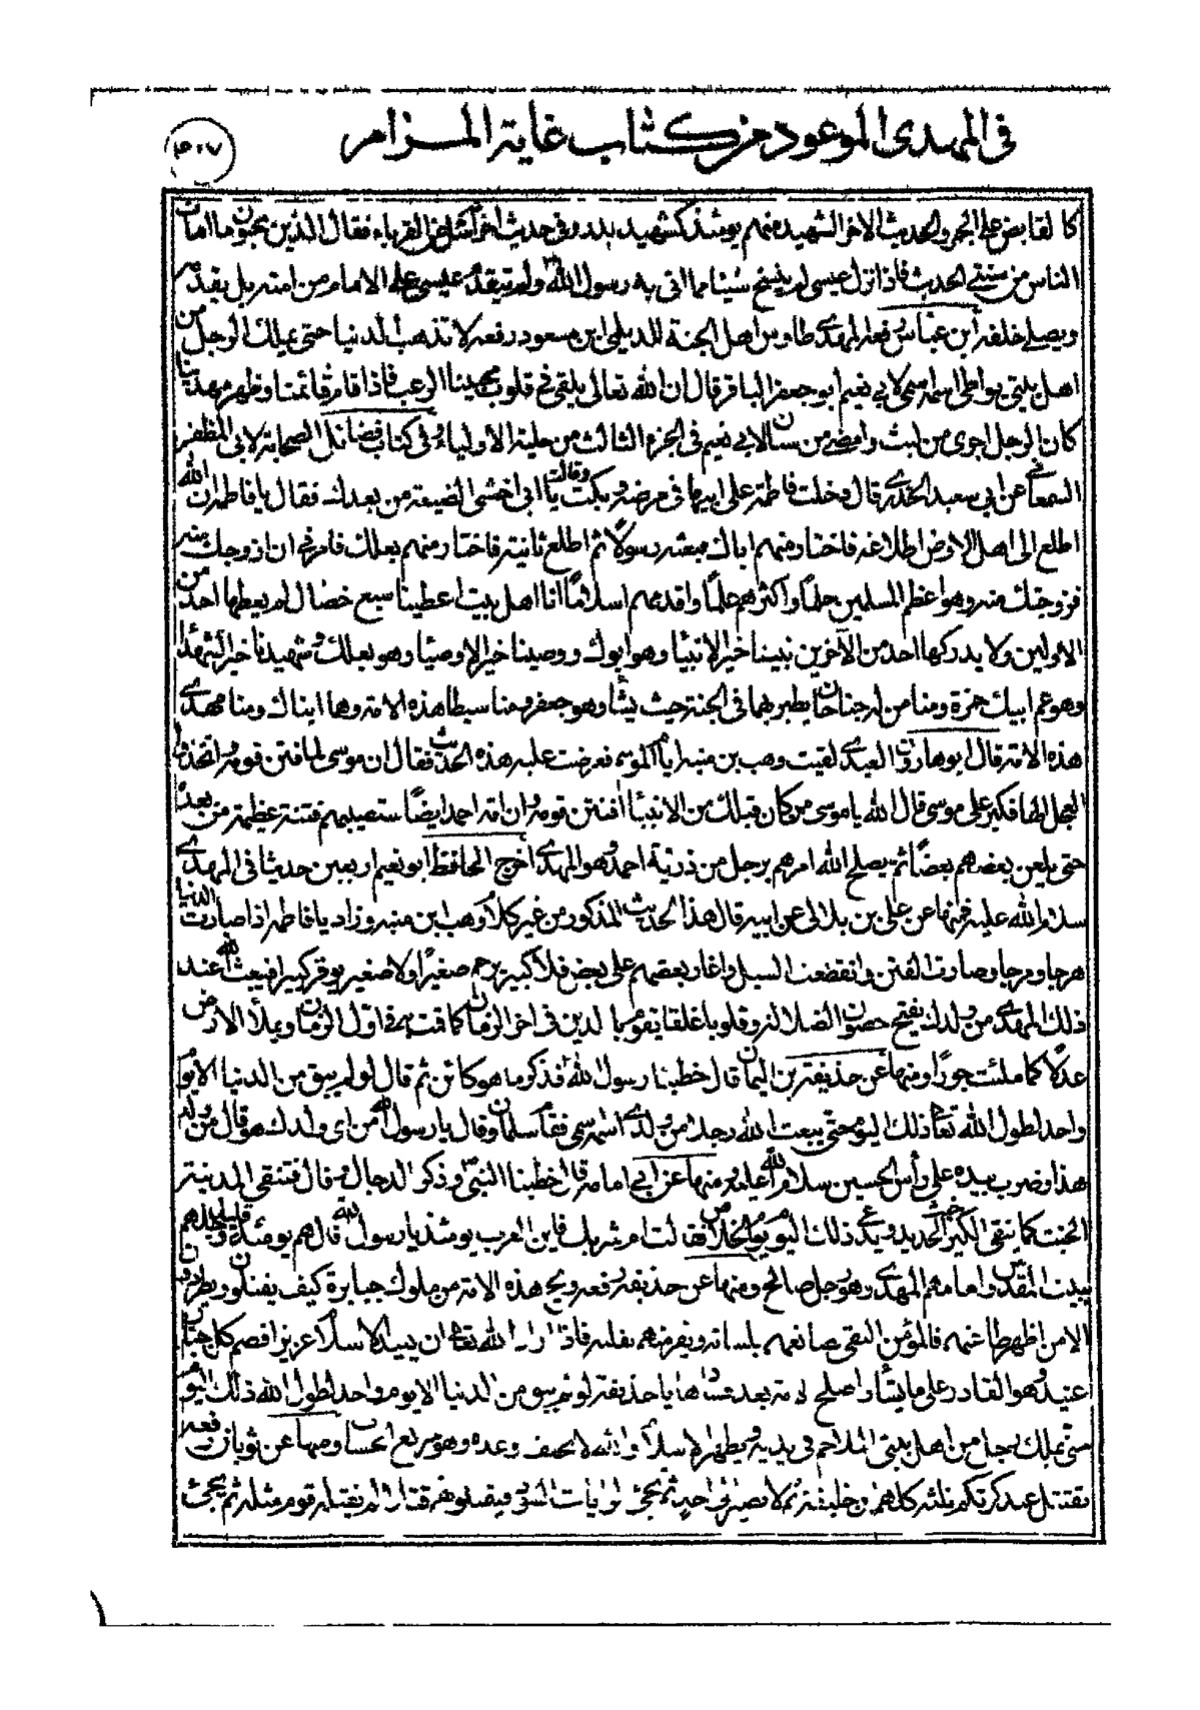 فى المهدى الموعود من كتاب غاية المرام
٣٠٧
كالقابض على الجمر والحديث الاخر الشهيد منهم يومئذ كشهيد بدر وفى حديث اخر فقال الذين يحيون ما امات
الناس من سنتى الحديث فاذا نزل عيسى لم ينسخ شيئا مما اتى به رسول الله ولم يتقدم عيسى على الامام من امته بل يقدمه
ويصلى خلفه ابن عباس رفعه المهدى طاوس اهل الجنة للديلمى ابن مسعود رفعه لا تذهب الدنيا حتى يملك الرجل من
اهل بيتى يواطى اسمه اسمى لابى نعيم ابو جعفر الباقر قال ان الله تعالى يلقى فى قلوب محبينا الرعب فاذا قام قائمنا وظهر مهدينا
كان الرجل اجرى من ليث وامضى من سنان لابى نعيم فى الجزء الثالث من حلية الأولياء وفى كتاب فضائل الصحابة لابى المظفر
السمعانى عن ابى سعيد الخدرى قال دخلت فاطمة على ابيها فى مرضه وبكت وقالت يا ابى اخشى الضيعة من بعدك فقال يا فاطمة ان الله
اطلع الى اهل الارض اطلاعة فاختار منهم اباك فبعثه رسولاً ثم اطلع ثانية فاختار منهم بعلك فامرنى ان ازوجك منه
فزوجتك منه وهو اعظم المسلمين حلمًا واكثرهم علمًا واقدمهم اسلامًا انا اهل بيت اعطينا سبع خصال لم يعطها احد من
الاولين ولا يدركها احد من الآخرين نبينا خير الانبيا وهو ابوك ووصينا خير الاوصيا وهو بعلك وشهيدنا خير الشهدا
وهو عم ابيك حمزة ومنا من له جناحان يطير بهما فى الجنة حيث يشا وهو جعفر ومنا سبطا هذه الامة وهما ابناك ومنا مهدى
هذه الامة قال ابو هارون العبدى لقيت وهب بن منبه ايام الموسم فعرضت عليه هذه الحديث فقال ان موسى لما فتن قومه واتخذوا
العجل الها فكبر على موسى قال الله يا موسى من كان قبلك من الانبيا افتتن قومه وان امة احمد ايضًا ستصيبهم فتنة عظيمة من بعده
حتى يلعن بعضهم بعضًا ثم يصلح الله امرهم برجل من ذرية احمد وهو المهدى اخرج الحافظ ابو نعيم اربعين حديثا فى المهدى
سلام الله عليه فمنها عن على بن بلال عن ابيه قال هذا الحديث المذكور من غير كلام وهب ابن منبه وزاد يا فاطمة اذا صارت الدنيا
هرجا ومرجا وصارت الفتن وانقضعت السبل واغار بعضهم على بعض فلا كبير يرحم صغيرًا ولا صغير يوقر كبيرا فيبعث الله عند
ذلك المهدى من ولدك يفتح حصون الضلالة وقلوبا غلقا يقوم بالدين فى اخر الزمان كما قمت به فى اول الزمان ويملأ الارض
عدلاً كما ملئت جورًا ومنها عن حذيفة بن اليمان قال خطبنا رسول الله فذكر ما هو كائن ثم قال لو لم يبق من الدنيا الا يوم
واحد لطول الله تعالى ذلك اليوم حتى يبعث الله رجلا من ولدى اسمه اسمى فقام سلمان وقال يا رسول الله من اى ولدك هو قال من ولد
هذا وضرب بيده على رأس الحسين سلام الله عليه ومنها عن ابى امامة قال خطبنا النبى وذكر الدجال وقال فتنقى المدينة
الخبث كما ينقى الكير خبث الحديد ويدعى ذلك اليوم يوم الخلاص فقالت ام شريك فاين العرب يومئذ يا رسول الله قال هم يومئذ قليل وجلهم
ببيت المقدس وامامهم المهدى وهو رجل صالح ومنها عن حذيفة رفعه ويح هذه الامة من ملوك جبابرة كيف يقتلون ويطردون
الا من اظهر طاعتهم فالمؤمن التقى صانعهم بلسانه ويفر منهم بقلبه فاذا اراد الله تعالى ان يعيد الاسلام عزيزا قصم كل جبار
عنيد وهو القادر على ما يشاء واصلح الامة بعد فسادها يا حذيفة لو لم يبق من الدنيا الا يوم واحد لطول الله ذلك اليوم
حتى يملك رجل من اهل بيتى الملاحم فى يديه ويظهر الاسلام والله لا يخلف وعده وهو سريع الحساب ومنها عن ثوبان رفعه
يقتتل عند كنزكم ثلثة كلهم بن خليفة ثم لا يصير الى احد ثم تجئ الرايات السود فيقتلونهم قتالا لم يقتله قوم مثله ثم يجئ